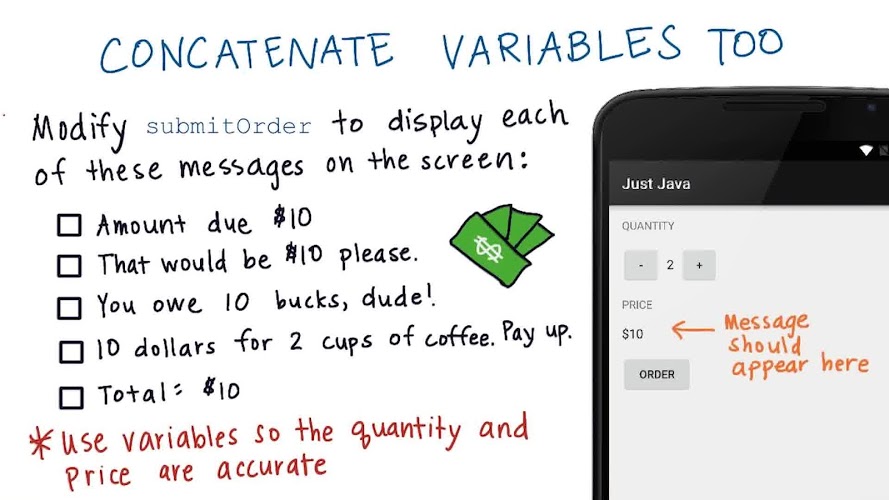 CONCATENATE VARIABLES TOO
Modify submitOrder to display each
of these messages on the screen:
Amount due $10
That would be $10 please.
You owe 10 bucks, dude!
10 dollars for 2 cups of coffee. Pay up.
Total: $10
* Use variables so the quantity and
Price are accurate
Just Java
QUANTITY
- 2 +
PRICE
$10
Message
should
appear here
ORDER